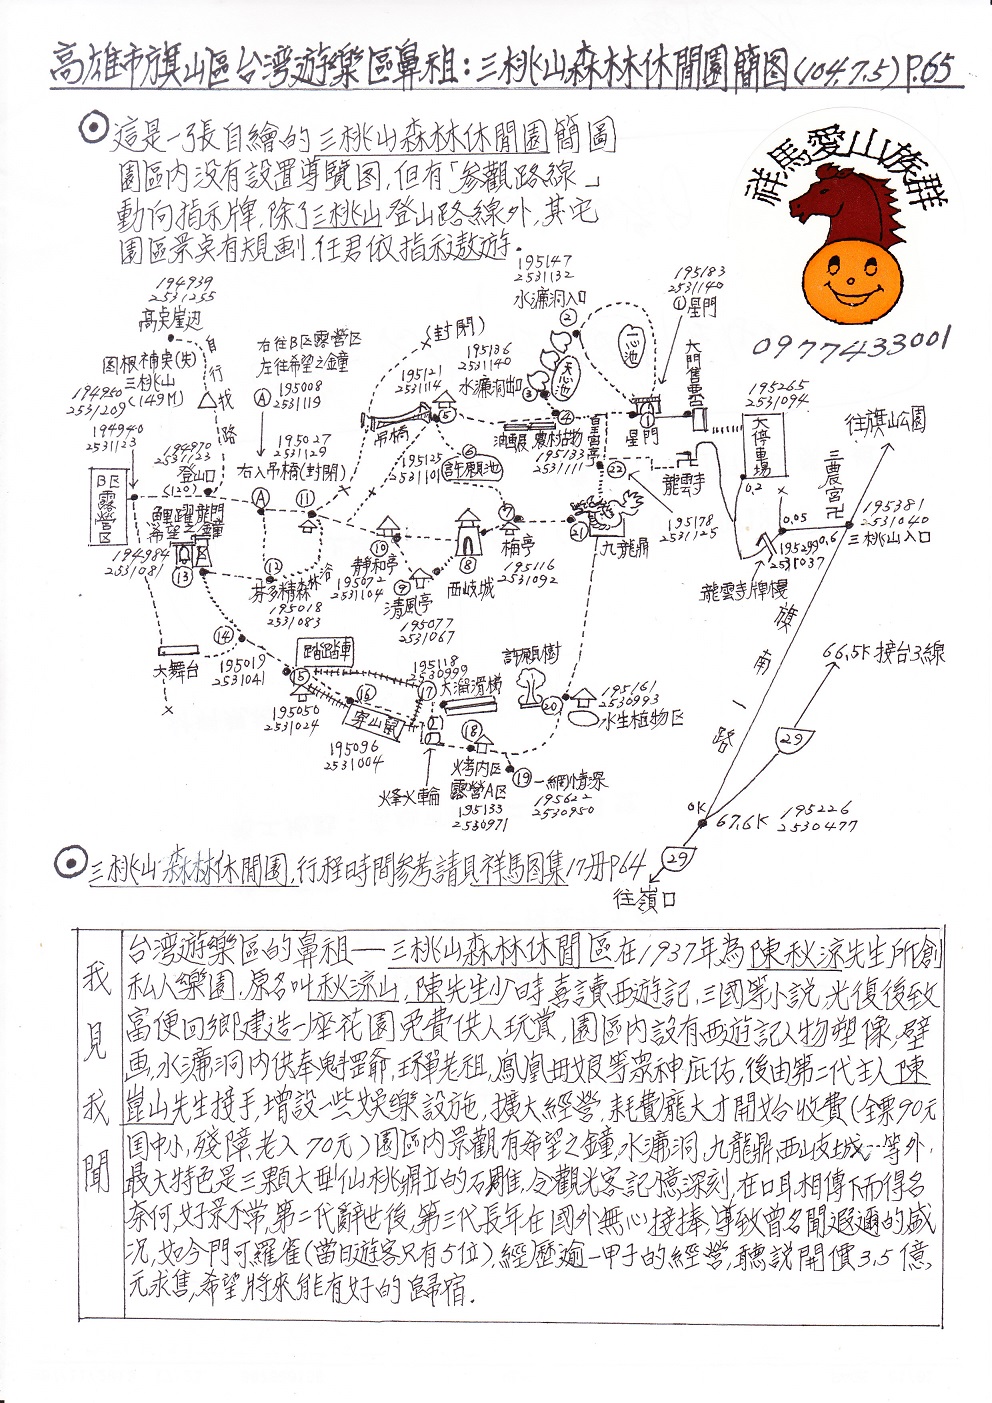 高雄市旗山區台湾遊樂區鼻祖：三桃山森林休閒園簡图(104.7.5) P.65
祥馬愛山族群
0977433001
⊙這是一張自繪的三桃山森林休閒園簡圖
園區內没有設置導覽图,但有「参觀路線」
動向指示牌,除了三桃山登山路線外,其它
園區景點有規劃,任君依指示遨遊.
194939
2531255
高點崖辺
自行找路
图根補點(失)
三桃山
194950
2531209
(149M)
右往B区露營区
左往希望之鐘
Ⓐ 195008
2531119
(封閉)
195121
2531114
195136
2531140
水濂洞出口
195147
2531132
水濂洞入口
②
一心池
天心池
195183
2531140
①星門
大門售票口
195265
2531094
大停車場
0.2
往旗山公園
三農宮卍
194940
2531123
194970
2531123
登山口
(120)
195027
2531129
右入吊橋(封閉)
吊橋
⑤
③
④
油畫展
農村古物
195133
2531111
皇宮亭
①
星門
龍雲寺
195125
2531101
⑥
許願池
B区露營区
鯉躍龍門
希望之鐘
Ⓐ
⑪
⑩
靜和亭
⑦
梅亭
⑧
西岐城
195116
2531092
㉑
九龍鼎
㉒
195178
2531125
0.05
195299
2531037
0.6
195381
2531040
三桃山入口
龍雲寺牌樓
194984
2531081
⑬
⑫
芬多精森林浴
195018
2531083
195072
2531104
⑨
清風亭
195077
2531067
旗南一路
66.5K接台3線
29
⑭
大舞台
195019
2531041
踏踏車
⑮
195050
2531024
⑯
穿山鼠
195096
2531004
195118
2530999
⑰
大溜滑梯
許願樹
⑳
195161
2530993
水生植物区
風火輪
⑱
烤肉区
露營A区
195133
2530971
⑲一網情深
195622
2530950
0K
67.6K
195226
2530477
29
往嶺口
⊙三桃山森林休閒園,行程時間參考請見祥馬图集17册P.64
我見我聞
台湾遊樂區的鼻祖—三桃山森林休閒區在1937年為陳秋涼先生所創
私人樂園.原名叫秋涼山,陳先生少時喜讀西遊記,三國等小説,光復後致
富便回鄉建造一座花園免費供人玩賞,園區内設有西遊記人物塑像,壁
画,水濂洞内供奉魁罡爺,王禪老祖,鳳凰毋娘等眾神庇佑,後由第二代主人陳
崑山先生接手,增設一些娛樂設施,擴大經營,耗費龐大才開始收費(全票90元
国中小,殘障,老人70元)園區内景觀有希望之鐘,水濂洞,九龍鼎,西岐城…等外,
最大特色是三顆大型仙桃鼎立的石雕,令觀光客記憶深刻,在口耳相傳下而得名
奈何,好景不常,第二代辭世後,第三代長年在國外無心接捧,導致曾名聞遐邇的盛
况,如今門可羅雀(當日遊客只有5位),經歷逾一甲子的經營,聽説開價3.5億,
元求售,希望將來能有好的歸宿.